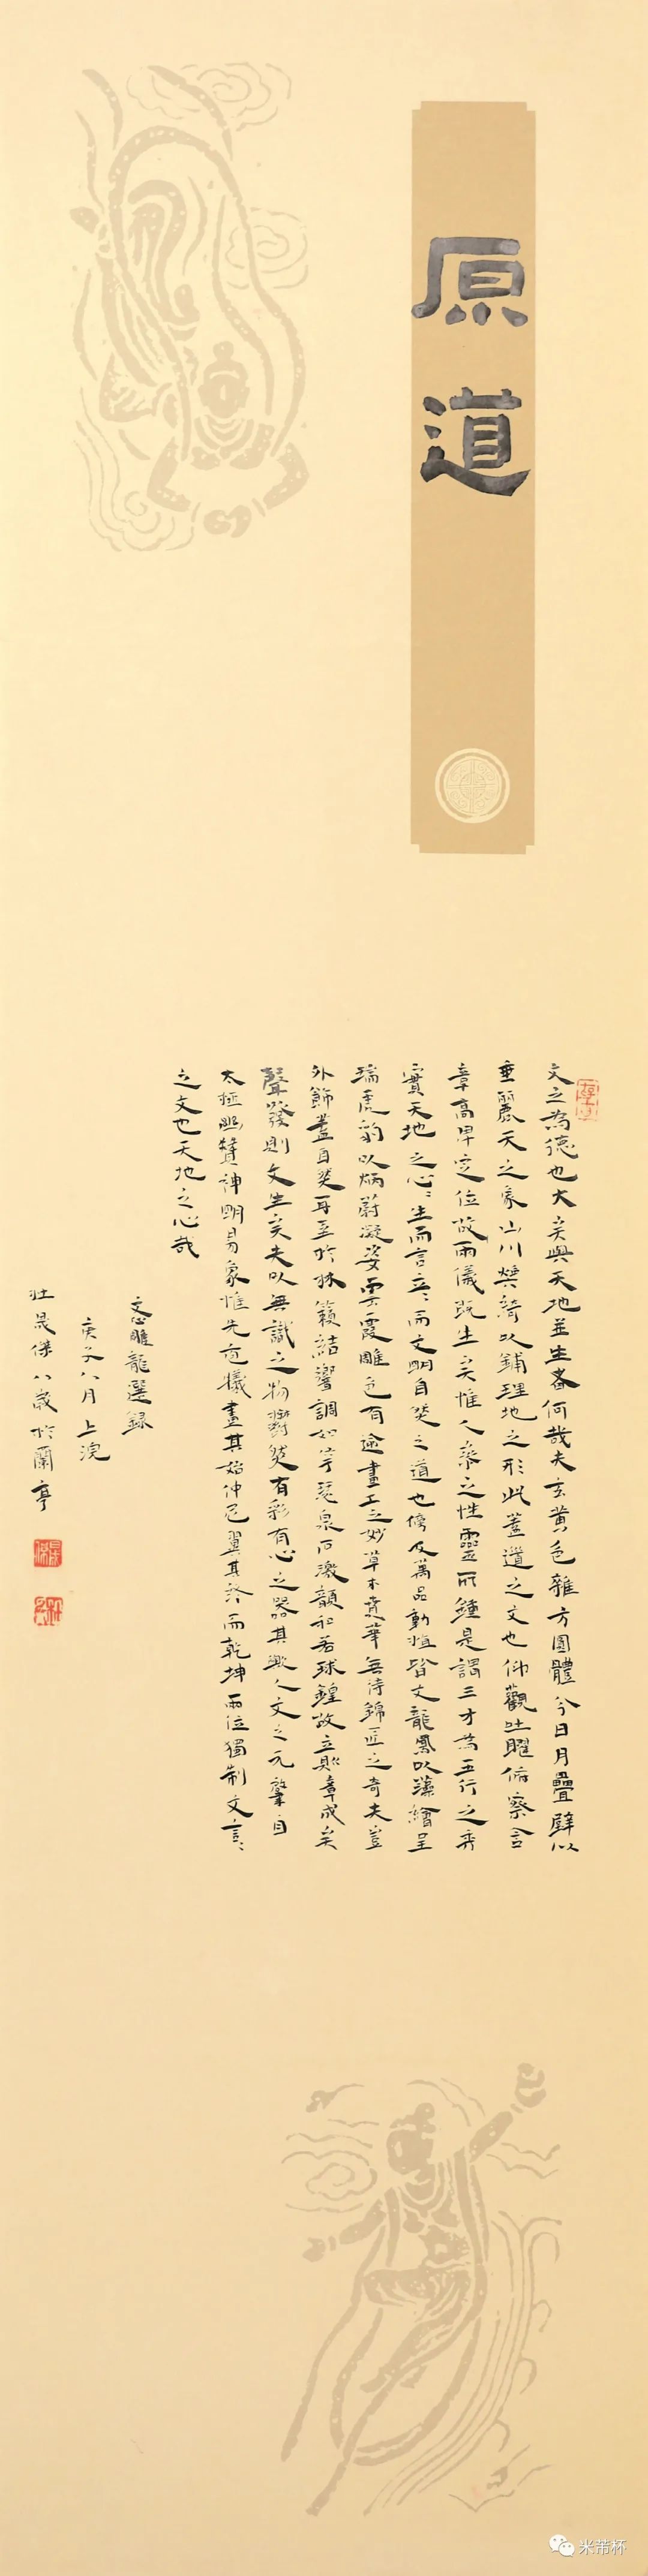 原道
文之為德也大矣與天地並生者何哉夫玄黄色雜方圓體分日月疊璧以
垂麗天之象山川煥綺以鋪理地之形此蓋道之文也仰觀吐曜俯察含
章高卑定位故兩儀既生矣惟人參之性靈所鍾是謂三才為五行之秀
實天地之心〻生而言立〻而文明自然之道也傍及萬品動植皆文龍鳳以藻繪呈
瑞虎豹以炳蔚凝姿雲霞雕色有逾畫工之妙草木賁華無待錦匠之奇夫豈
外飾蓋自然耳至於林籟結響調如竽瑟泉石激韻和若球鍠故立則章成矣
聲發則文生矣夫以無識之物鬱然有彩有心之器其無人文之元肇自
太極幽贊神明易象惟先庖犧畫其始仲尼翼其終而乾坤兩位獨制文言〻
之文也天地之心哉
文心雕龍選録
庚子八月上浣
杜晟傑八歲於蘭亭
米芾杯